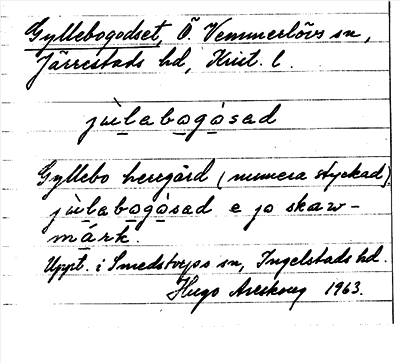 Gyllebogodset, Ö. Vemmerlövs sn,
Järrestads hd, Krist. l.
jùlabogósad
Gyllebo heregård (numera styckad)
jùlabogòsad e jo skaw-
márk.
Uppt. i Smedstorps sn, Ingelstads hd.
Hugo Areskoug 1963.